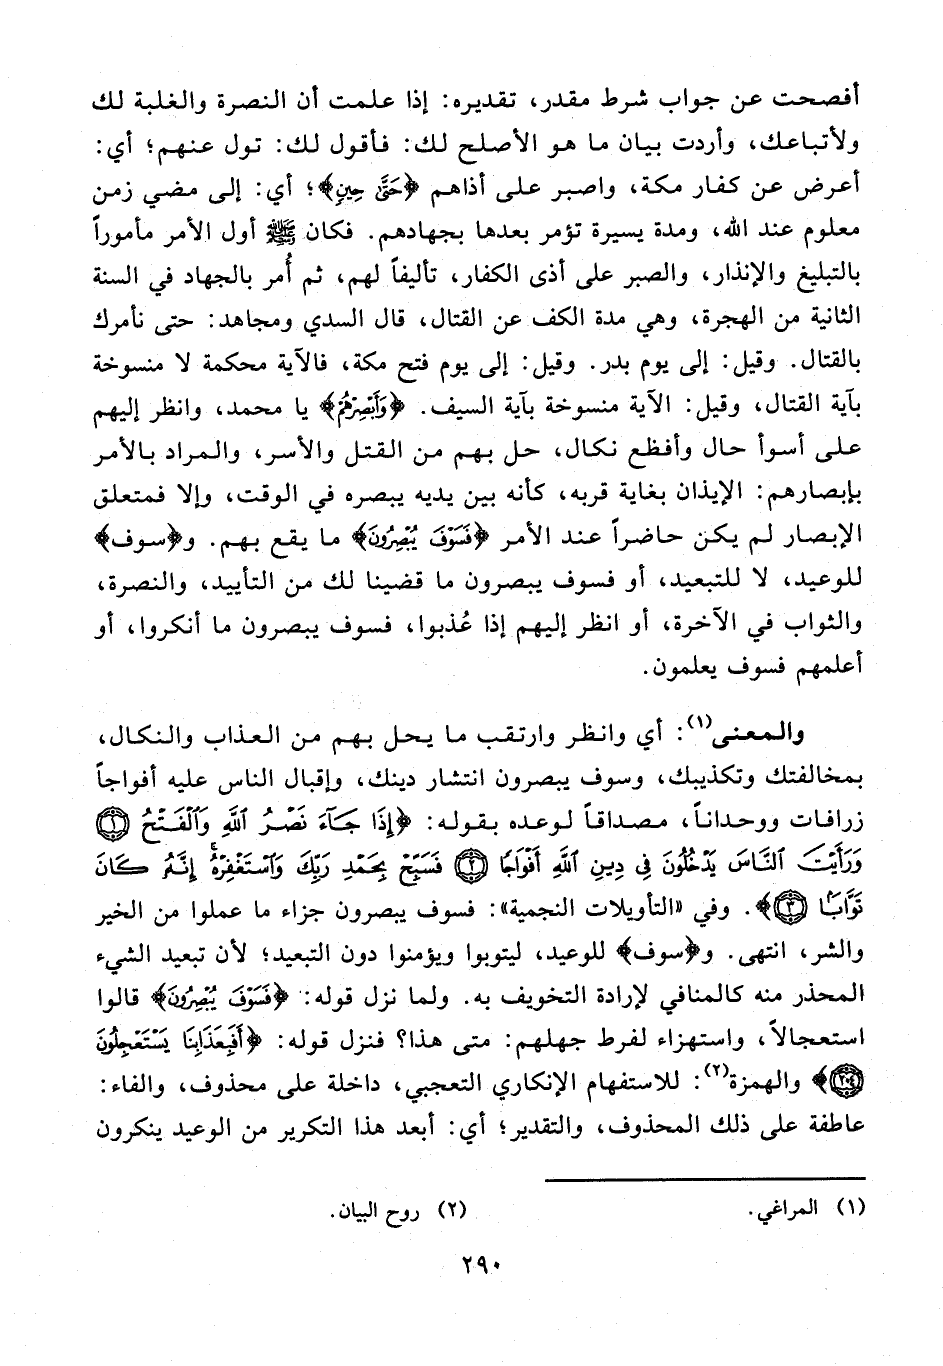 أفصحت عن جواب شرط مقدر، تقديره: إذا علمت أن النصرة والغلبة لك
ولأتباعك، وأردت بيان ما هو الأصلح لك: فأقول لك: تول عنهم؛ أي:
أعرض عن كفار مكة، واصبر على أذاهم ﴿حَتَّىٰ حِينٍ﴾؛ أي: إلى مضي زمن
معلوم عند الله، ومدة يسيرة تؤمر بعدها بجهادهم. فكان ﷺ أول الأمر مأموراً
بالتبليغ والإنذار، والصبر على أذى الكفار، تأليفاً لهم، ثم أُمر بالجهاد في السنة
الثانية من الهجرة، وهي مدة الكف عن القتال، قال السدي ومجاهد: حتى نأمرك
بالقتال. وقيل: إلى يوم بدر. وقيل: إلى يوم فتح مكة، فالآية محكمة لا منسوخة
بآية القتال، وقيل: الآية منسوخة بآية السيف. ﴿وَأَبْصِرْهُمْ﴾ يا محمد، وانظر إليهم
على أسوأ حال وأفظع نكال، حل بهم من القتل والأسر، والمراد بالأمر
بإبصارهم: الإيذان بغاية قربه، كأنه بين يديه يبصره في الوقت، وإلا فمتعلق
الإبصار لم يكن حاضراً عند الأمر ﴿فَسَوْفَ يُبْصِرُونَ﴾ ما يقع بهم. و﴿سوف﴾
للوعيد، لا للتبعيد، أو فسوف يبصرون ما قضينا لك من التأييد، والنصرة،
والثواب في الآخرة، أو انظر إليهم إذا عُذبوا، فسوف يبصرون ما أنكروا، أو
أعلمهم فسوف يعلمون.
والمعنى(١): أي وانظر وارتقب ما يحل بهم من العذاب والنكال،
بمخالفتك وتكذيبك، وسوف يبصرون انتشار دينك، وإقبال الناس عليه أفواجاً
زرافات ووحداناً، مصداقاً لوعده بقوله: ﴿إِذَا جَآءَ نَصْرُ ٱللَّهِ وَٱلْفَتْحُ ١
وَرَأَيْتَ ٱلنَّاسَ يَدْخُلُونَ فِى دِينِ ٱللَّهِ أَفْوَاجًا ٢ فَسَبِّحْ بِحَمْدِ رَبِّكَ وَٱسْتَغْفِرْهُ إِنَّهُۥ كَانَ
تَوَّابًۢا ٣﴾. وفي «التأويلات النجمية»: فسوف يبصرون جزاء ما عملوا من الخير
والشر، انتهى. و﴿سوف﴾ للوعيد، ليتوبوا ويؤمنوا دون التبعيد؛ لأن تبعيد الشيء
المحذر منه كالمنافي لإرادة التخويف به. ولما نزل قوله: ﴿فَسَوْفَ يُبْصِرُونَ﴾ قالوا
استعجالاً، واستهزاء لفرط جهلهم: متى هذا؟ فنزل قوله: ﴿أَفَبِعَذَابِنَا يَسْتَعْجِلُونَ
٢٠٤﴾ والهمزة(٢): للاستفهام الإنكاري التعجبي، داخلة على محذوف، والفاء:
عاطفة على ذلك المحذوف، والتقدير؛ أي: أبعد هذا التكرير من الوعيد ينكرون
(١) المراغي. (٢) روح البيان.
٢٩٠